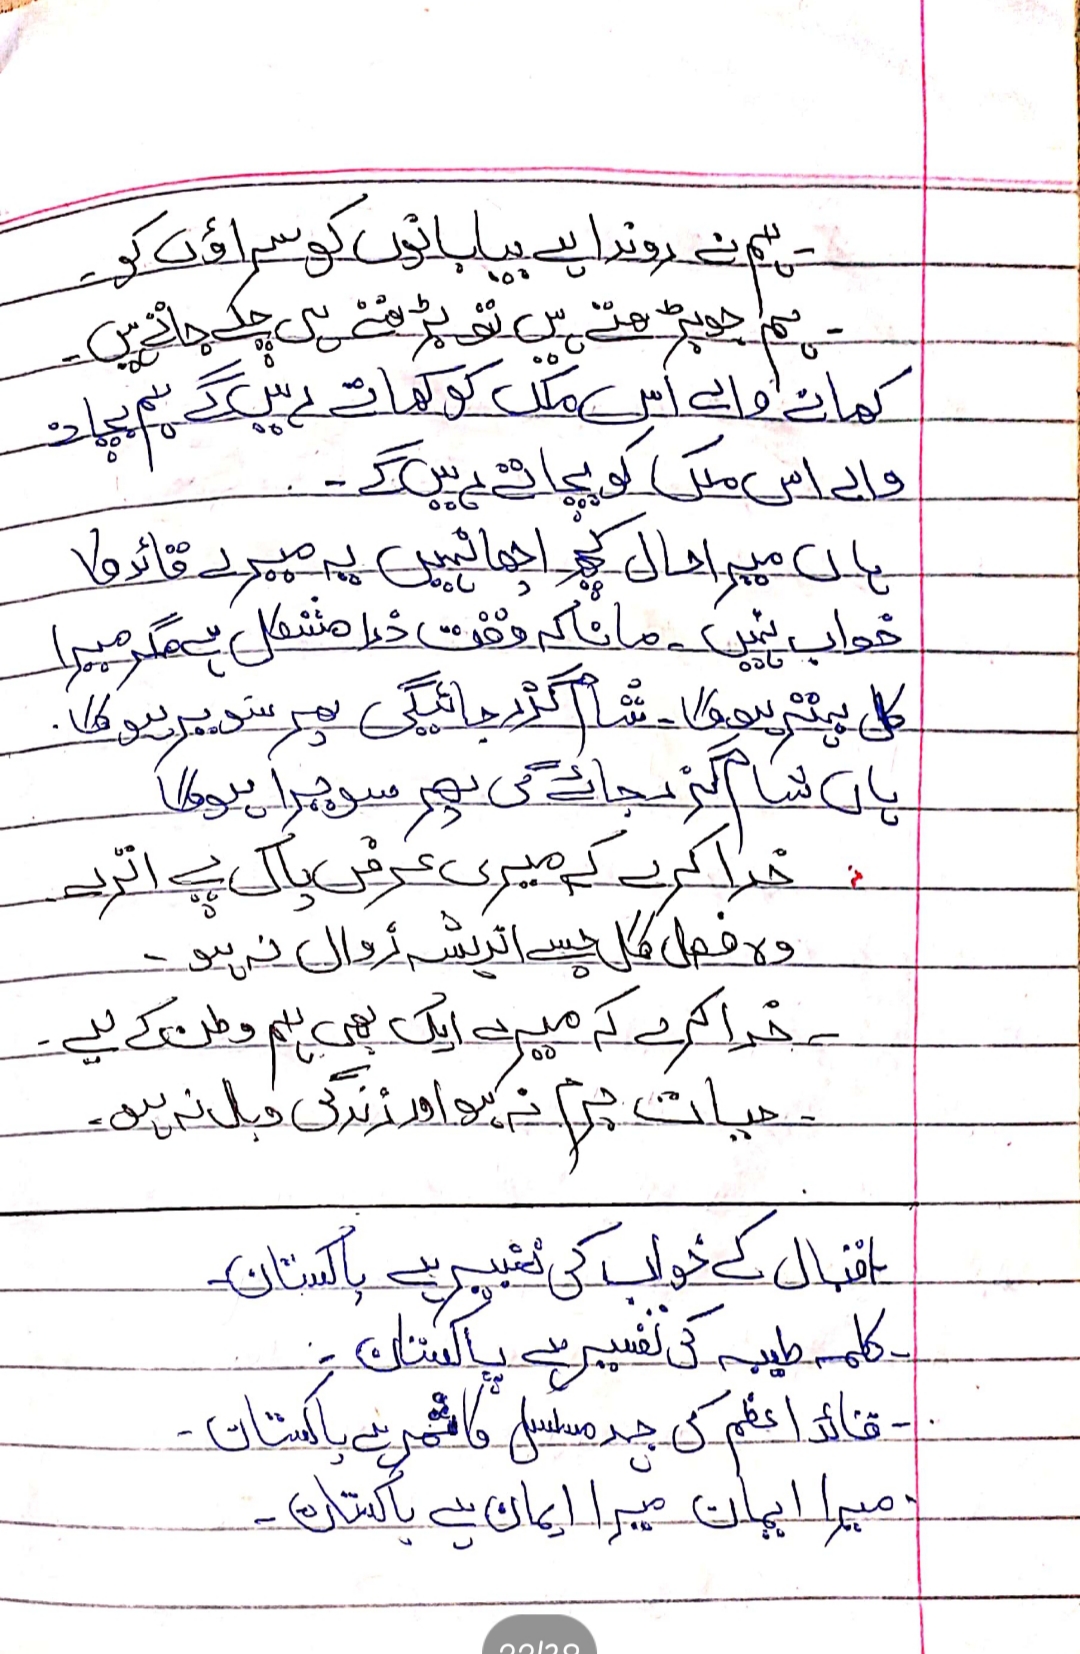 ہم نے روندا ہے بیابانوں کو سراؤں کو۔
۔ ہم جو بڑھتے ہیں تو بڑھتے ہی چلے جاتے ہیں۔
کھانے والے اس ملک کو کھاتے رہیں گے ہم بچانے
والے اس ملک کو بچاتے رہیں گے۔
ہاں میرا حال کچھ اچھا نہیں یہ میرے قائد کا
خواب نہیں۔ مانا کہ وقت ذرا مشکل ہے مگر میرا
کل بہتر ہوگا۔ شام گزر جائیگی پھر سویر ہوگا۔
ہاں شام گزر جائے گی پھر سویرا ہوگا
خدا کرے کے میری عرض پاک پے اترے
وہ فصل گل جسے اندیشہ زوال نہ ہو۔
۔ خدا کرے کہ میرے ایک بھی ہم وطن کے لیے۔
۔ حیات جرم نہ ہو اور زندگی وبال نہ ہو۔
اقبال کے خواب کی تعبیر ہے پاکستان۔
۔ کلمہ طیبہ کی تفسیر ہے پاکستان۔
۔ قائد اعظم کی جہد مسلسل کا ثمر ہے پاکستان۔
میرا ایمان میرا ایمان ہے پاکستان۔